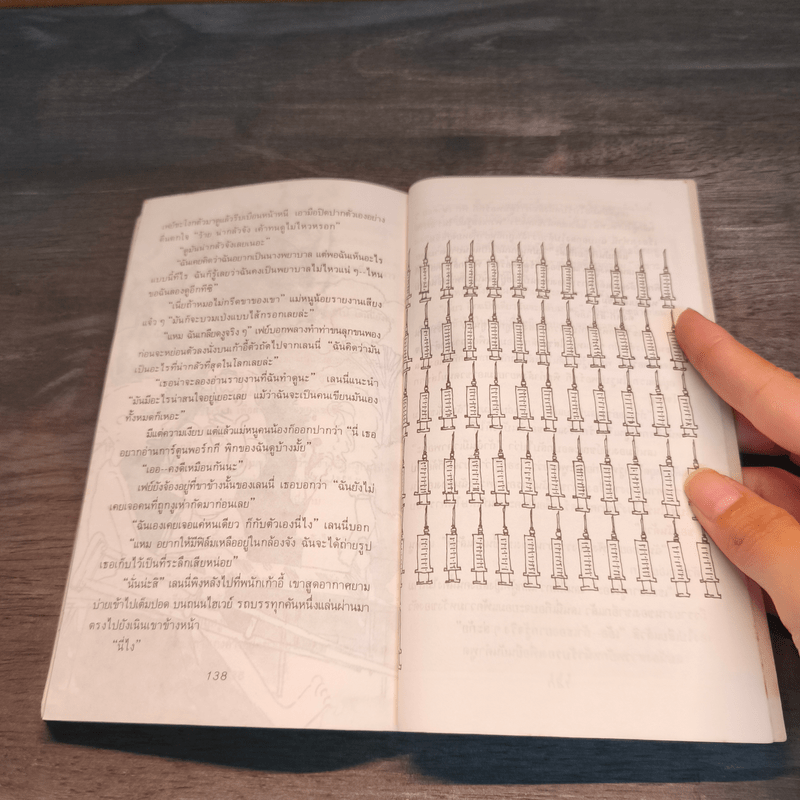 ตื่นตกใจ "ว้าย น่ากลัวจัง เค้าทนดูไม่ไหวหรอก"
"ดูมันน่ากลัวจังเลยเนอะ"
"ฉันเคยคิดว่าฉันอยากเป็นนางพยาบาล แต่พอฉันเห็นอะไร
แบบนี้ทีไร ฉันก็รู้เลยว่าฉันคงเป็นพยาบาลไม่ไหวแน่ ๆ--ไหน
ขอฉันลองดูอีกทีซิ"
"เนี่ยถ้าหมอไม่กรีดขาของเขา" แม่หนูน้อยรายงานเสียง
แจ้ว ๆ "มันก็จะบวมเป่งแบบไส้กรอกเลยล่ะ"
"แหม ฉันเกลียดงูจริง ๆ" เฟย์บอกพลางทำท่าขนลุกขนพอง
ก่อนจะหย่อนตัวลงนั่งบนเก้าอี้ตัวถัดไปจากเลนนี่ "ฉันคิดว่ามัน
เป็นอะไรที่น่ากลัวที่สุดในโลกเลยล่ะ"
"เธอน่าจะลองอ่านรายงานที่ฉันทำดูนะ" เลนนี่แนะนำ
"มันมีอะไรน่าสนใจอยู่เยอะเลย แม้ว่าฉันจะเป็นคนเขียนมันเอง
ทั้งหมดก็เหอะ"
มีแต่ความเงียบ แต่แล้วแม่หนูคนน้องก็ออกปากว่า "นี่ เธอ
อยากอ่านการ์ตูนพอร์กกี้ พิกของฉันดูบ้างมั้ย"
"เออ--คงดีเหมือนกันนะ"
เฟย์ยังจ้องอยู่ที่ขาข้างนั้นของเลนนี่ เธอบอกว่า "ฉันยังไม่
เคยเจอคนที่ถูกงูเห่ากัดมาก่อนเลย"
"ฉันเองเคยเจอแค่หนเดียว ก็กับตัวเองนี่ไง" เลนนี่บอก
"แหม อยากให้มีฟิล์มเหลืออยู่ในกล้องจัง ฉันจะได้ถ่ายรูป
เธอเก็บไว้เป็นที่ระลึกเสียหน่อย"
"นั่นน่ะสิ" เลนนี่พิงหลังไปที่พนักเก้าอี้ เขาสูดอากาศยาม
บ่ายเข้าไปเต็มปอด บนถนนไฮเวย์ รถบรรทุกคันหนึ่งแล่นผ่านมา
ตรงไปยังเนินเขาข้างหน้า
"นี่ไง"
138